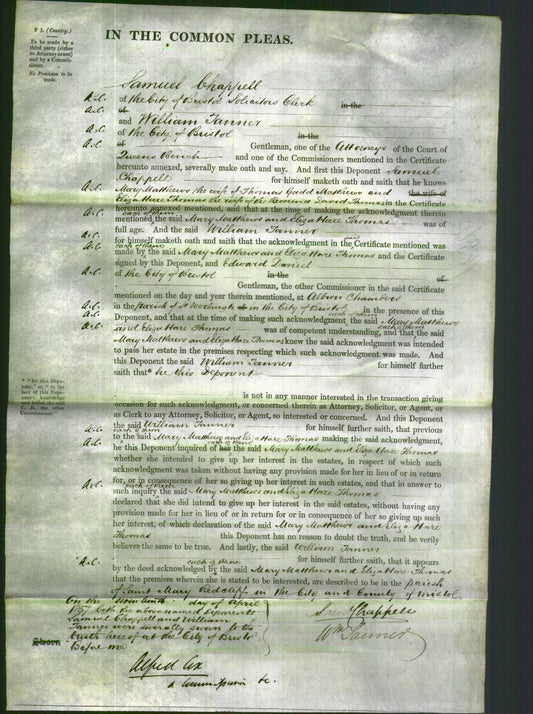 F 1. (Country.)
To be made by a
third party (either
an Attorney or not)
and by a Commis-
sioner.
No Provision to be
made.
IN THE COMMON PLEAS.
Samuel Chappell
A.C. of the City of Bristol Solicitors Clerk in the
A.C. of
and William Tanner
A.C. of the City of Bristol in the
A.C. of Gentleman, one of the Attorneys of the Court of
Queens Bench and one of the Commissioners mentioned in the Certificate
hereunto annexed, severally make oath and say. And first this Deponent Samuel
Chappell for himself maketh oath and saith that he knows
A.C. Mary Matthews the wife of Thomas Gadd Matthews and the wife of
Eliza Hare Thomas the wife of the Reverend David Thomas in the Certificate
hereunto annexed mentioned, and that at the time of making the acknowledgment therein
A.C. each of them
mentioned the said Mary Matthews and Eliza Hare Thomas was of
full age. And the said William Tanner
A.C. for himself maketh oath and saith that the acknowledgment in the Certificate mentioned was
A.C. each of them
made by the said Mary Matthews and Eliza Hare Thomas and the Certificate
signed by this Deponent, and Edward Daniel
A.C. of the City of Bristol in the of
Gentleman, the other Commissioner in the said Certificate
mentioned on the day and year therein mentioned, at Albion Chambers
A.C. in the Parish of St Werburgh in the City of Bristol, in the presence of this
A.C. each of them
Deponent, and that at the time of making such acknowledgment, the said Mary Matthews
A.C. and Eliza Hare Thomas was of competent understanding, and that the said
each of them
Mary Matthews and Eliza Hare Thomas knew the said acknowledgment was intended
to pass her estate in the premises respecting which such acknowledgment was made. And
this Deponent the said William Tanner for himself further
saith that * he this Deponent
* "he this Depo-
nent," or, "to the
best of this Depo-
nent's knowledge
and belief, the said
C. D. the other
Commissioner."
is not in any manner interested in the transaction giving
occasion for such acknowledgment, or concerned therein as Attorney, Solicitor, or Agent,
or as Clerk to any Attorney, Solicitor, or Agent, so interested or concerned. And this Deponent
the said William Tanner for himself further saith, that previous
A.C. each of them
to the said Mary Matthews and Eliza Hare Thomas making the said acknowledgment,
A.C. each of them
he this Deponent inquired of her the said Mary Matthews and Eliza Hare Thomas
whether she intended to give up her interest in the estate, in respect of which such
acknowledgment was taken without having any provision made for her in lieu of or in return
for, or in consequence of her so giving up such interest, and that in answer to
A.C. each of them
such inquiry the said Mary Matthews and Eliza Hare Thomas
declared that she did intend to give up her interest in the said estates, without having any
provision made for her in lieu of or in return for or in consequence of her so giving up such
her interest, of which declaration of the said Mary Matthews and Eliza Hare
Thomas this Deponent has no reason to doubt the truth, and he verily
believes the same to be true. And lastly, the said William Tanner
each of them for himself further saith, that it appears
A.C. by the deed acknowledged by the said Mary Matthews and Eliza Hare Thomas
that the premises wherein she is stated to be interested, are described to be in the parish
of Saint Mary Redcliff in the City and County of Bristol.
On the day of April
1857 both the above named Deponents
Samuel Chappell and William
Tanner were severally sworn to the
truth hereof at the City of Bristol
Sworn
Before me
Saml Chappell
Wm Tanner
Alfred Cox
a Commissioner &c.